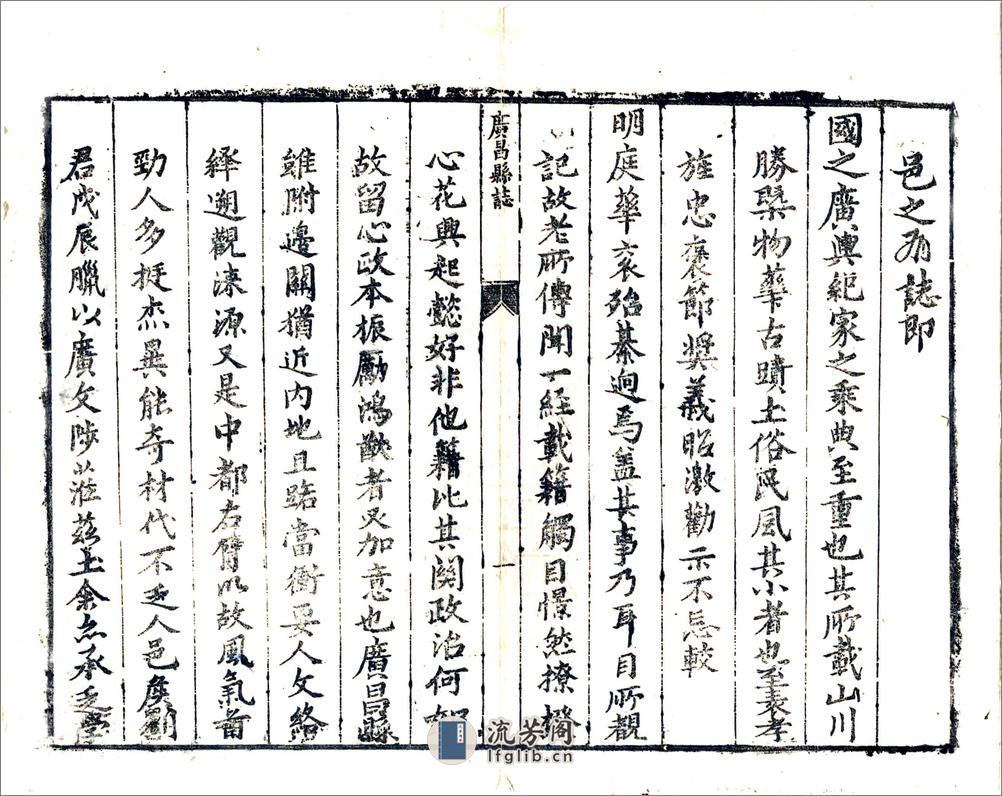 邑之有誌即
國之廣輿紀家之乘典至重也其所載山川
勝槩物華古蹟土俗民風其小者也至表孝
旌忠褒節奬義昭激勸示不忘較
明庭華衮殆綦逈焉盖其事乃耳目所觀
記故老所傳聞一經載籍觸目憬然撩撥
廣昌縣誌
一
心花興起懿好非他籍比其関政治何如
故留心政本振勵鴻猷者又加意也廣昌縣
雖附邊關猶近内地且踞當衝要人文絡
繹遡觀淶源又是中都右臂以故風氣音
勁人多挺杰異能奇材代不乏人邑矦劉
君戊辰臘以廣文陟蒞兹土余亦承乏學
流芳阁
lfglib.cn